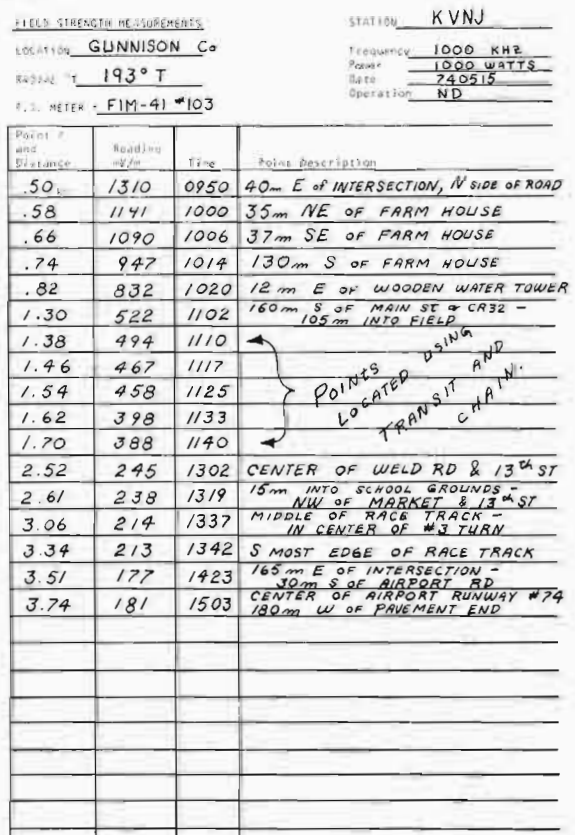 FIELD STRENGTH MEASUREMENTS
STATION KVNJ
LOCATION GUNNISON Co
Frequency 1000 KHZ
Power 1000 WATTS
RADIAL 193° T
Date 740515
Operation ND
F.S. METER - FIM-41 #103
Point #
and
Distance
Reading
mV/m
Time
Point Description
.50 1310 0950 40m E of INTERSECTION, N SIDE OF ROAD
.58 1141 1000 35m NE OF FARM HOUSE
.66 1090 1006 37m SE OF FARM HOUSE
.74 947 1014 130m S OF FARM HOUSE
.82 832 1020 12 m E OF WOODEN WATER TOWER
1.30 522 1102 160m S OF MAIN ST & CR32 -
105m INTO FIELD
1.38 494 1110
1.46 467 1117
1.54 458 1125
1.62 398 1133
1.70 388 1140
POINTS
LOCATED USING
TRANSIT AND
CHAIN.
2.52 245 1302 CENTER OF WELD RD & 13th ST
2.61 238 1319 15m INTO SCHOOL GROUNDS -
NW OF MARKET & 13th ST
3.06 214 1337 MIDDLE OF RACE TRACK -
IN CENTER OF #3 TURN
3.34 213 1342 S MOST EDGE OF RACE TRACK
3.51 177 1423 165m E OF INTERSECTION -
30m S OF AIRPORT RD
3.74 181 1503 CENTER OF AIRPORT RUNWAY #74
180m W OF PAVEMENT END